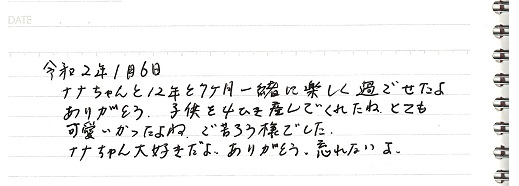 DATE
令和2年1月6日
ナナちゃんと12年と7ケ月一緒に楽しく過ごせたよ
ありがとう. 子供を4ひき産んでくれたね. とても
可愛いかったよね. ご苦ろう様でした.
ナナちゃん大好きだよ. ありがとう. 忘れないよ.